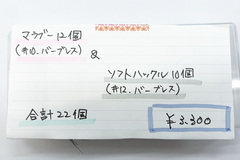 マラブー 12個
(#10. バーブレス)
&
ソフトハックル 10個
(#12. バーブレス)
合計 22個
¥3,300